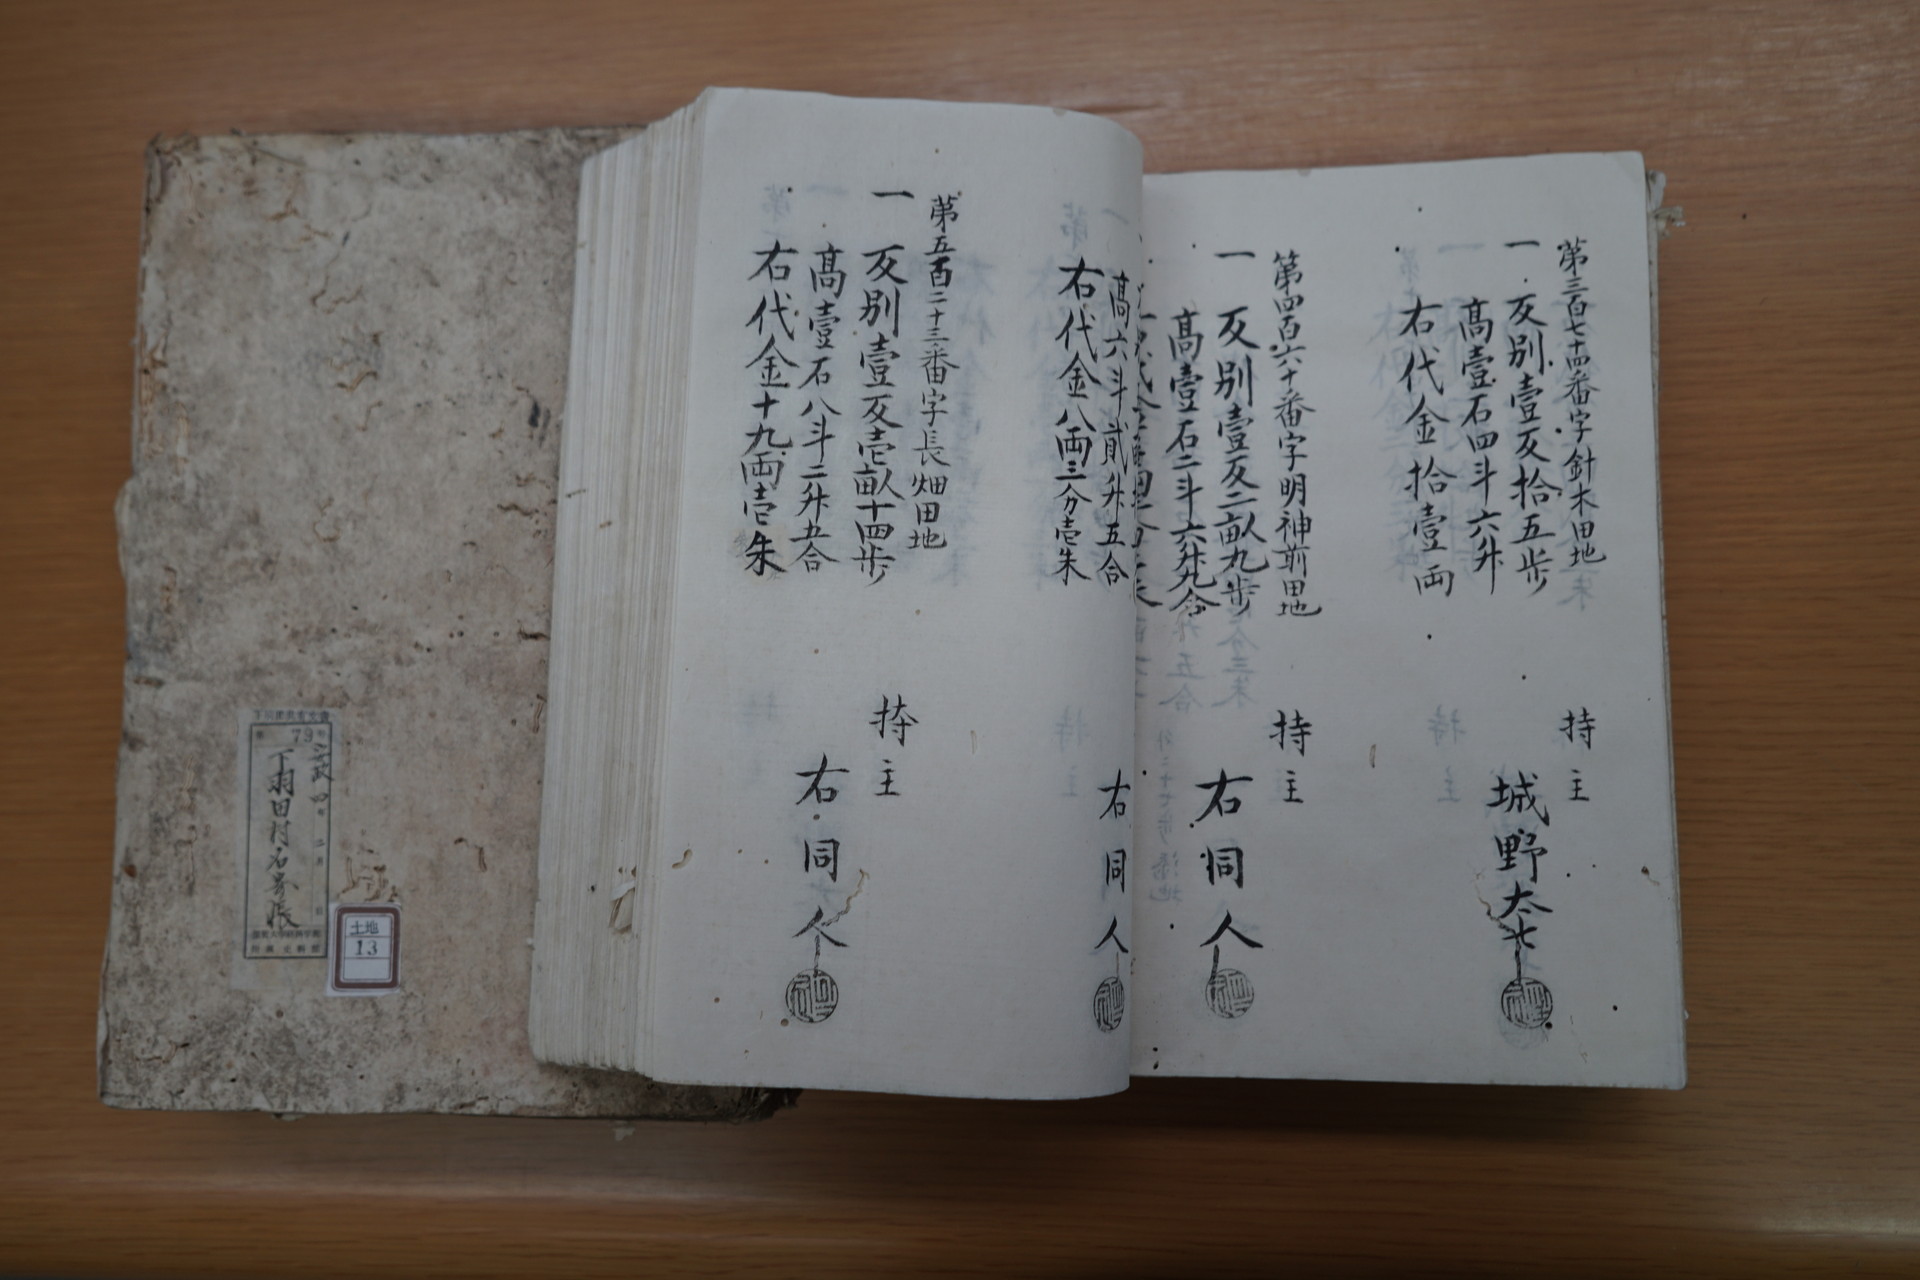 第三百七十四番字針木田地
一 反別壹反拾五歩
高壹石四斗六升
右代金拾壹両
持主
城野太七
第四百六十番字明神前田地
一 反別壹反二畝九歩
高壹石二斗六升九合
持主
右同人
高六斗貳升五合
右代金八両三分壱朱
右同人
第五百二十三番字長畑田地
一 反別壹反壱畝十四歩
高壹石八斗二升五合
右代金十九両壱朱
持主
右同人
79
下羽田村名寄帳
土地
13